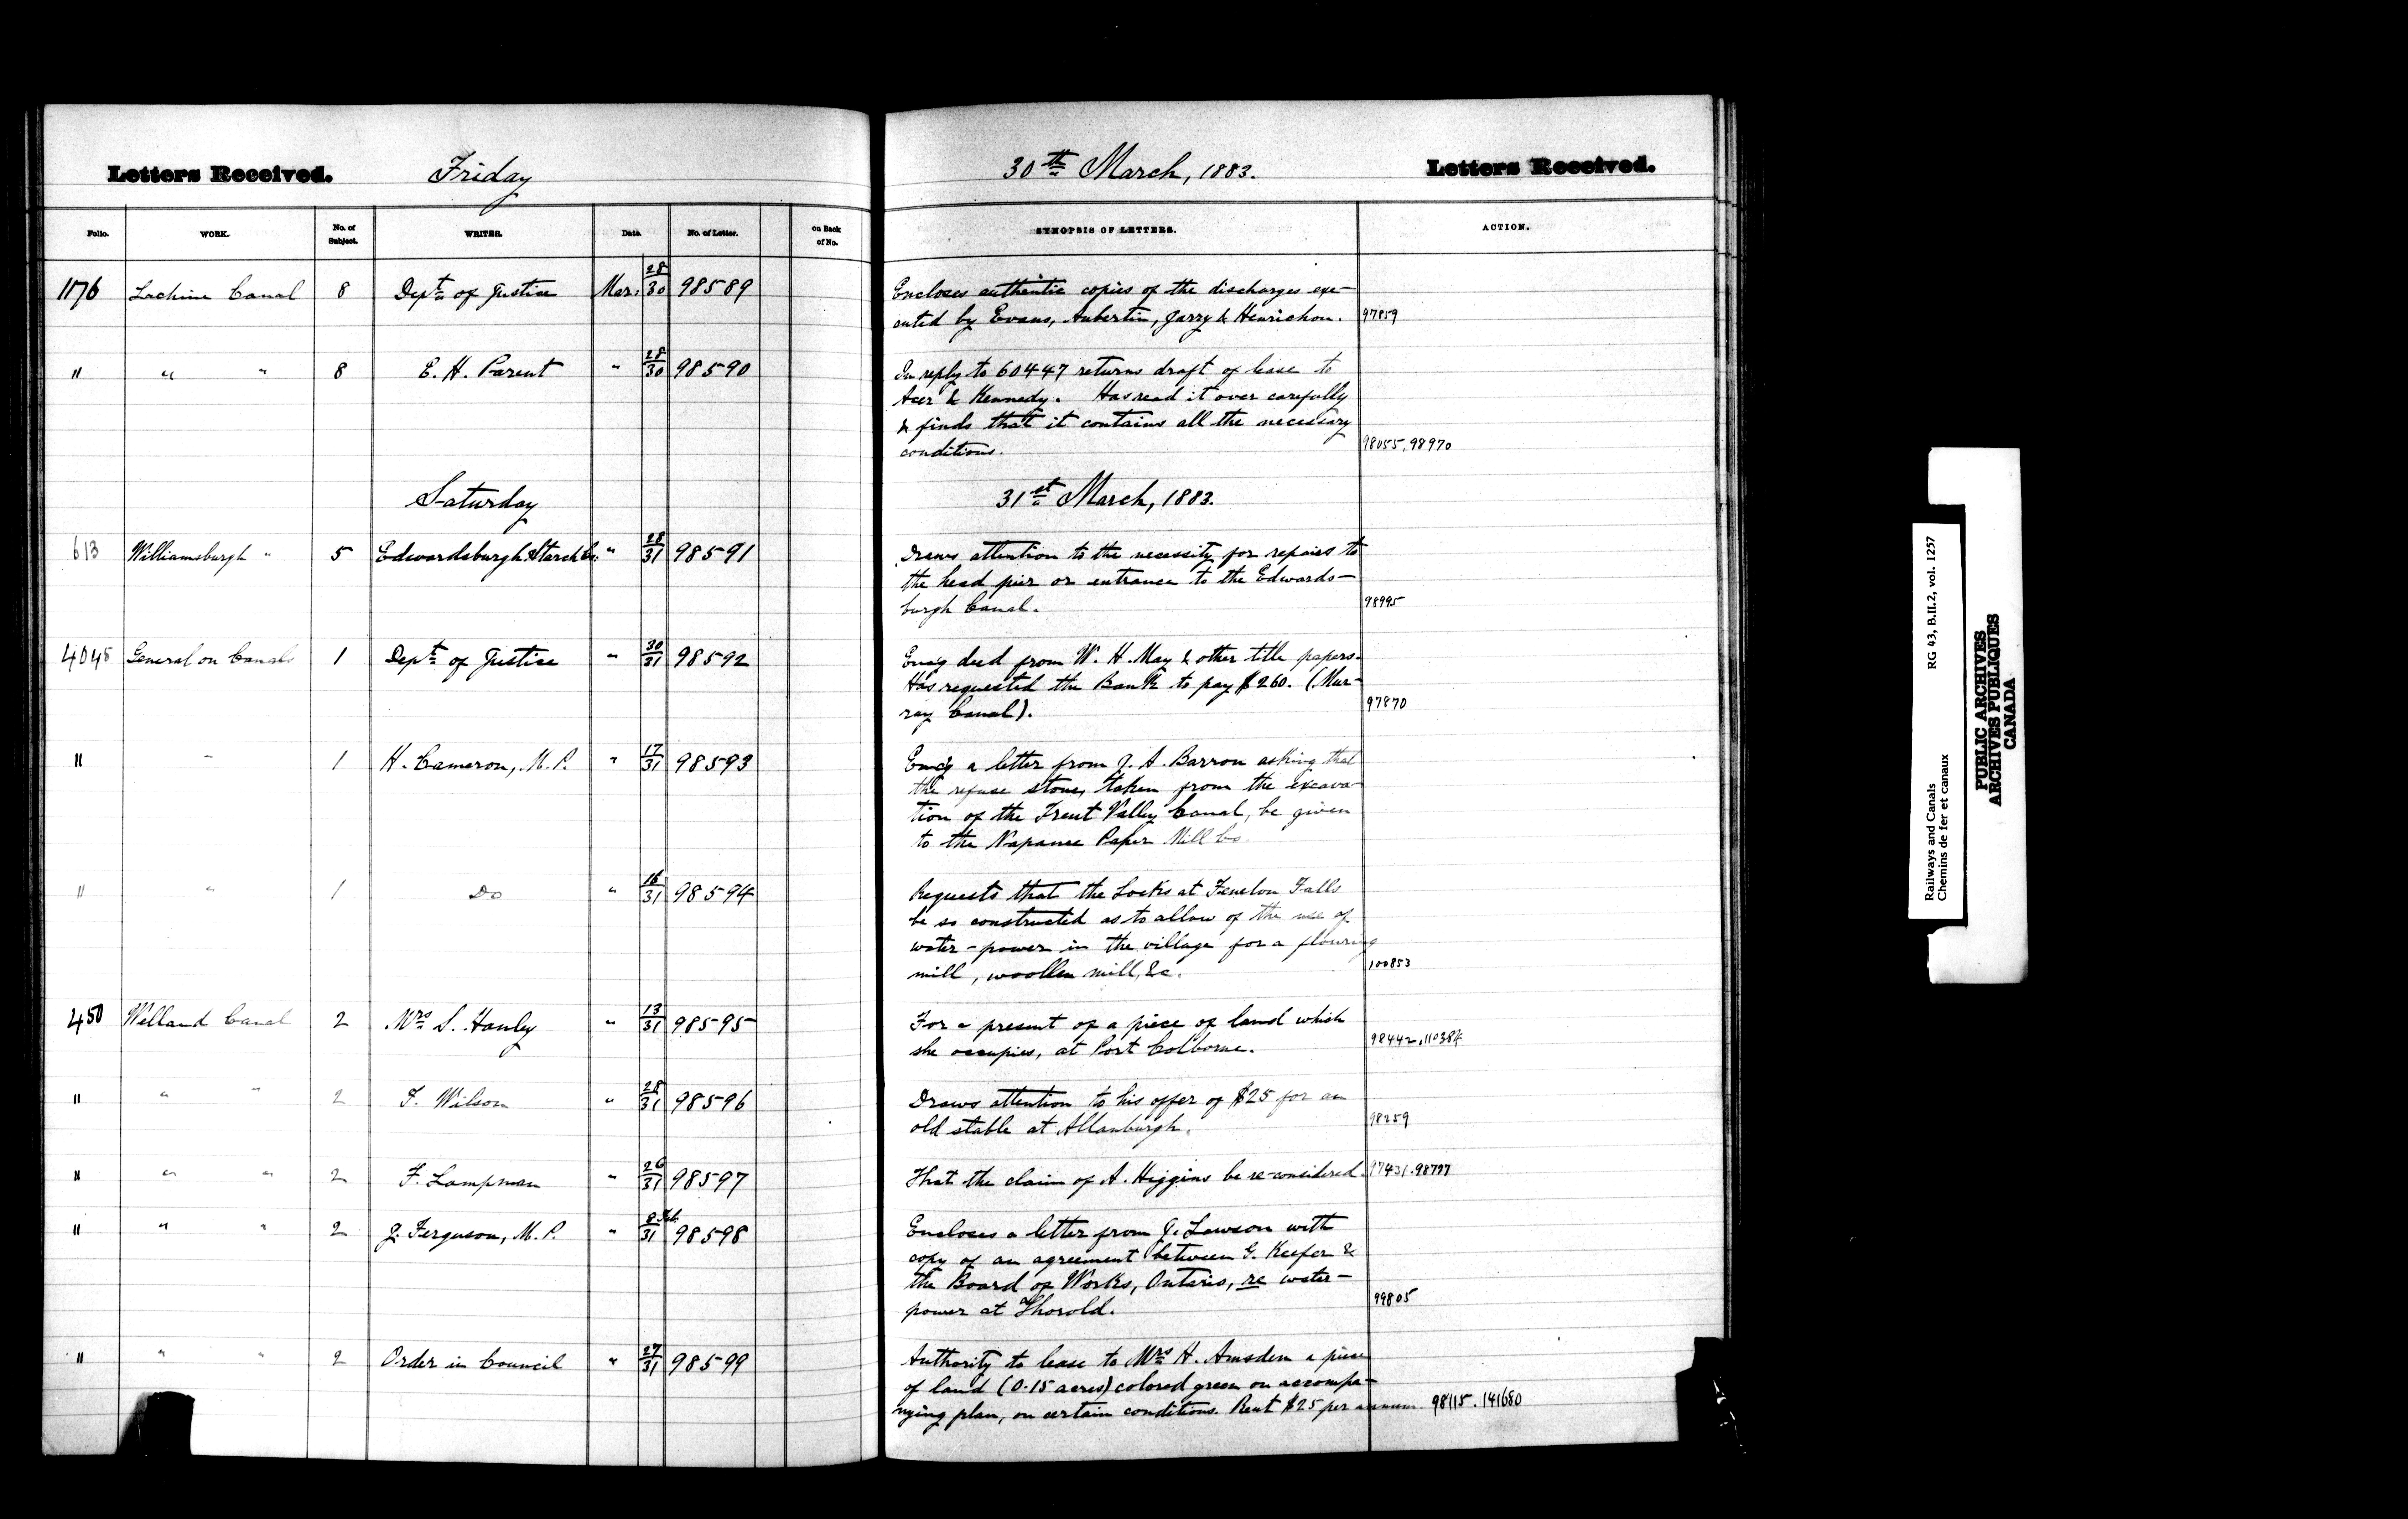 Letters Received. Friday 30th March, 1883. Letters Received.
Folio. WORK. No. of Subject. WRITER. Date. No. of Letter. on Back of No. SYNOPSIS OF LETTERS. ACTION.
1176 Lachine Canal 8 Dept. of Justice Mar. 28/30 98589 Encloses authentic copies of the discharges exe-
cuted by Evans, Aubertin, Jarry & Henrichon. 97859
" " " 8 E. H. Parent " 28/30 98590 In reply to 60447 returns draft of lease to
Acer & Kennedy. Has read it over carefully
& finds that it contains all the necessary
conditions. 98055, 98970
Saturday 31st March, 1883.
613 Williamsburgh " 5 Edwardsburgh Starch Co. " 28/31 98591 Draws attention to the necessity for repairs to
the head pier or entrance to the Edwards-
burgh Canal. 98995
4045 General on Canals 1 Dept. of Justice " 30/31 98592 Encg deed from W. H. May & other title papers.
Has requested the Bank to pay $260. (Mur-
ray Canal). 97870
" " 1 H. Cameron, M.P. " 17/31 98593 Encg a letter from J. A. Barron asking that
the refuse stone, taken from the excava-
tion of the Trent Valley Canal, be given
to the Napanee Paper Mill Co
" " 1 Do " 16/31 98594 Requests that the Locks at Fenelon Falls
be so constructed as to allow of the use of
water-power in the village for a flouring
mill, woollen mill, &c. 100853
450 Welland Canal 2 Mrs S. Hanley " 13/31 98595 For a present of a piece of land which
she occupies, at Port Colborne. 98442, 110384
" " " 2 F. Wilson " 28/31 98596 Draws attention to his offer of $25 for an
old stable at Allanburgh. 98259
" " " 2 F. Lampman " 26/31 98597 That the claim of A. Higgins be re-considered. 97431. 98797
" " " 2 J. Ferguson, M.P. " 8 Feb./31 98598 Encloses a letter from J. Lawson with
copy of an agreement between G. Keefer &
the Board of Works, Ontario, re water-
power at Thorold. 99805
" " " 2 Order in Council " 27/31 98599 Authority to lease to Mrs H. Amsden a piece
of land (0.15 acres) colored green on accompa-
nying plan, on certain conditions. Rent $25 per annum. 98115. 141680
Railways and Canals RG 43, B.II.2, vol. 1257
Chemins de fer et canaux
PUBLIC ARCHIVES
ARCHIVES PUBLIQUES
CANADA